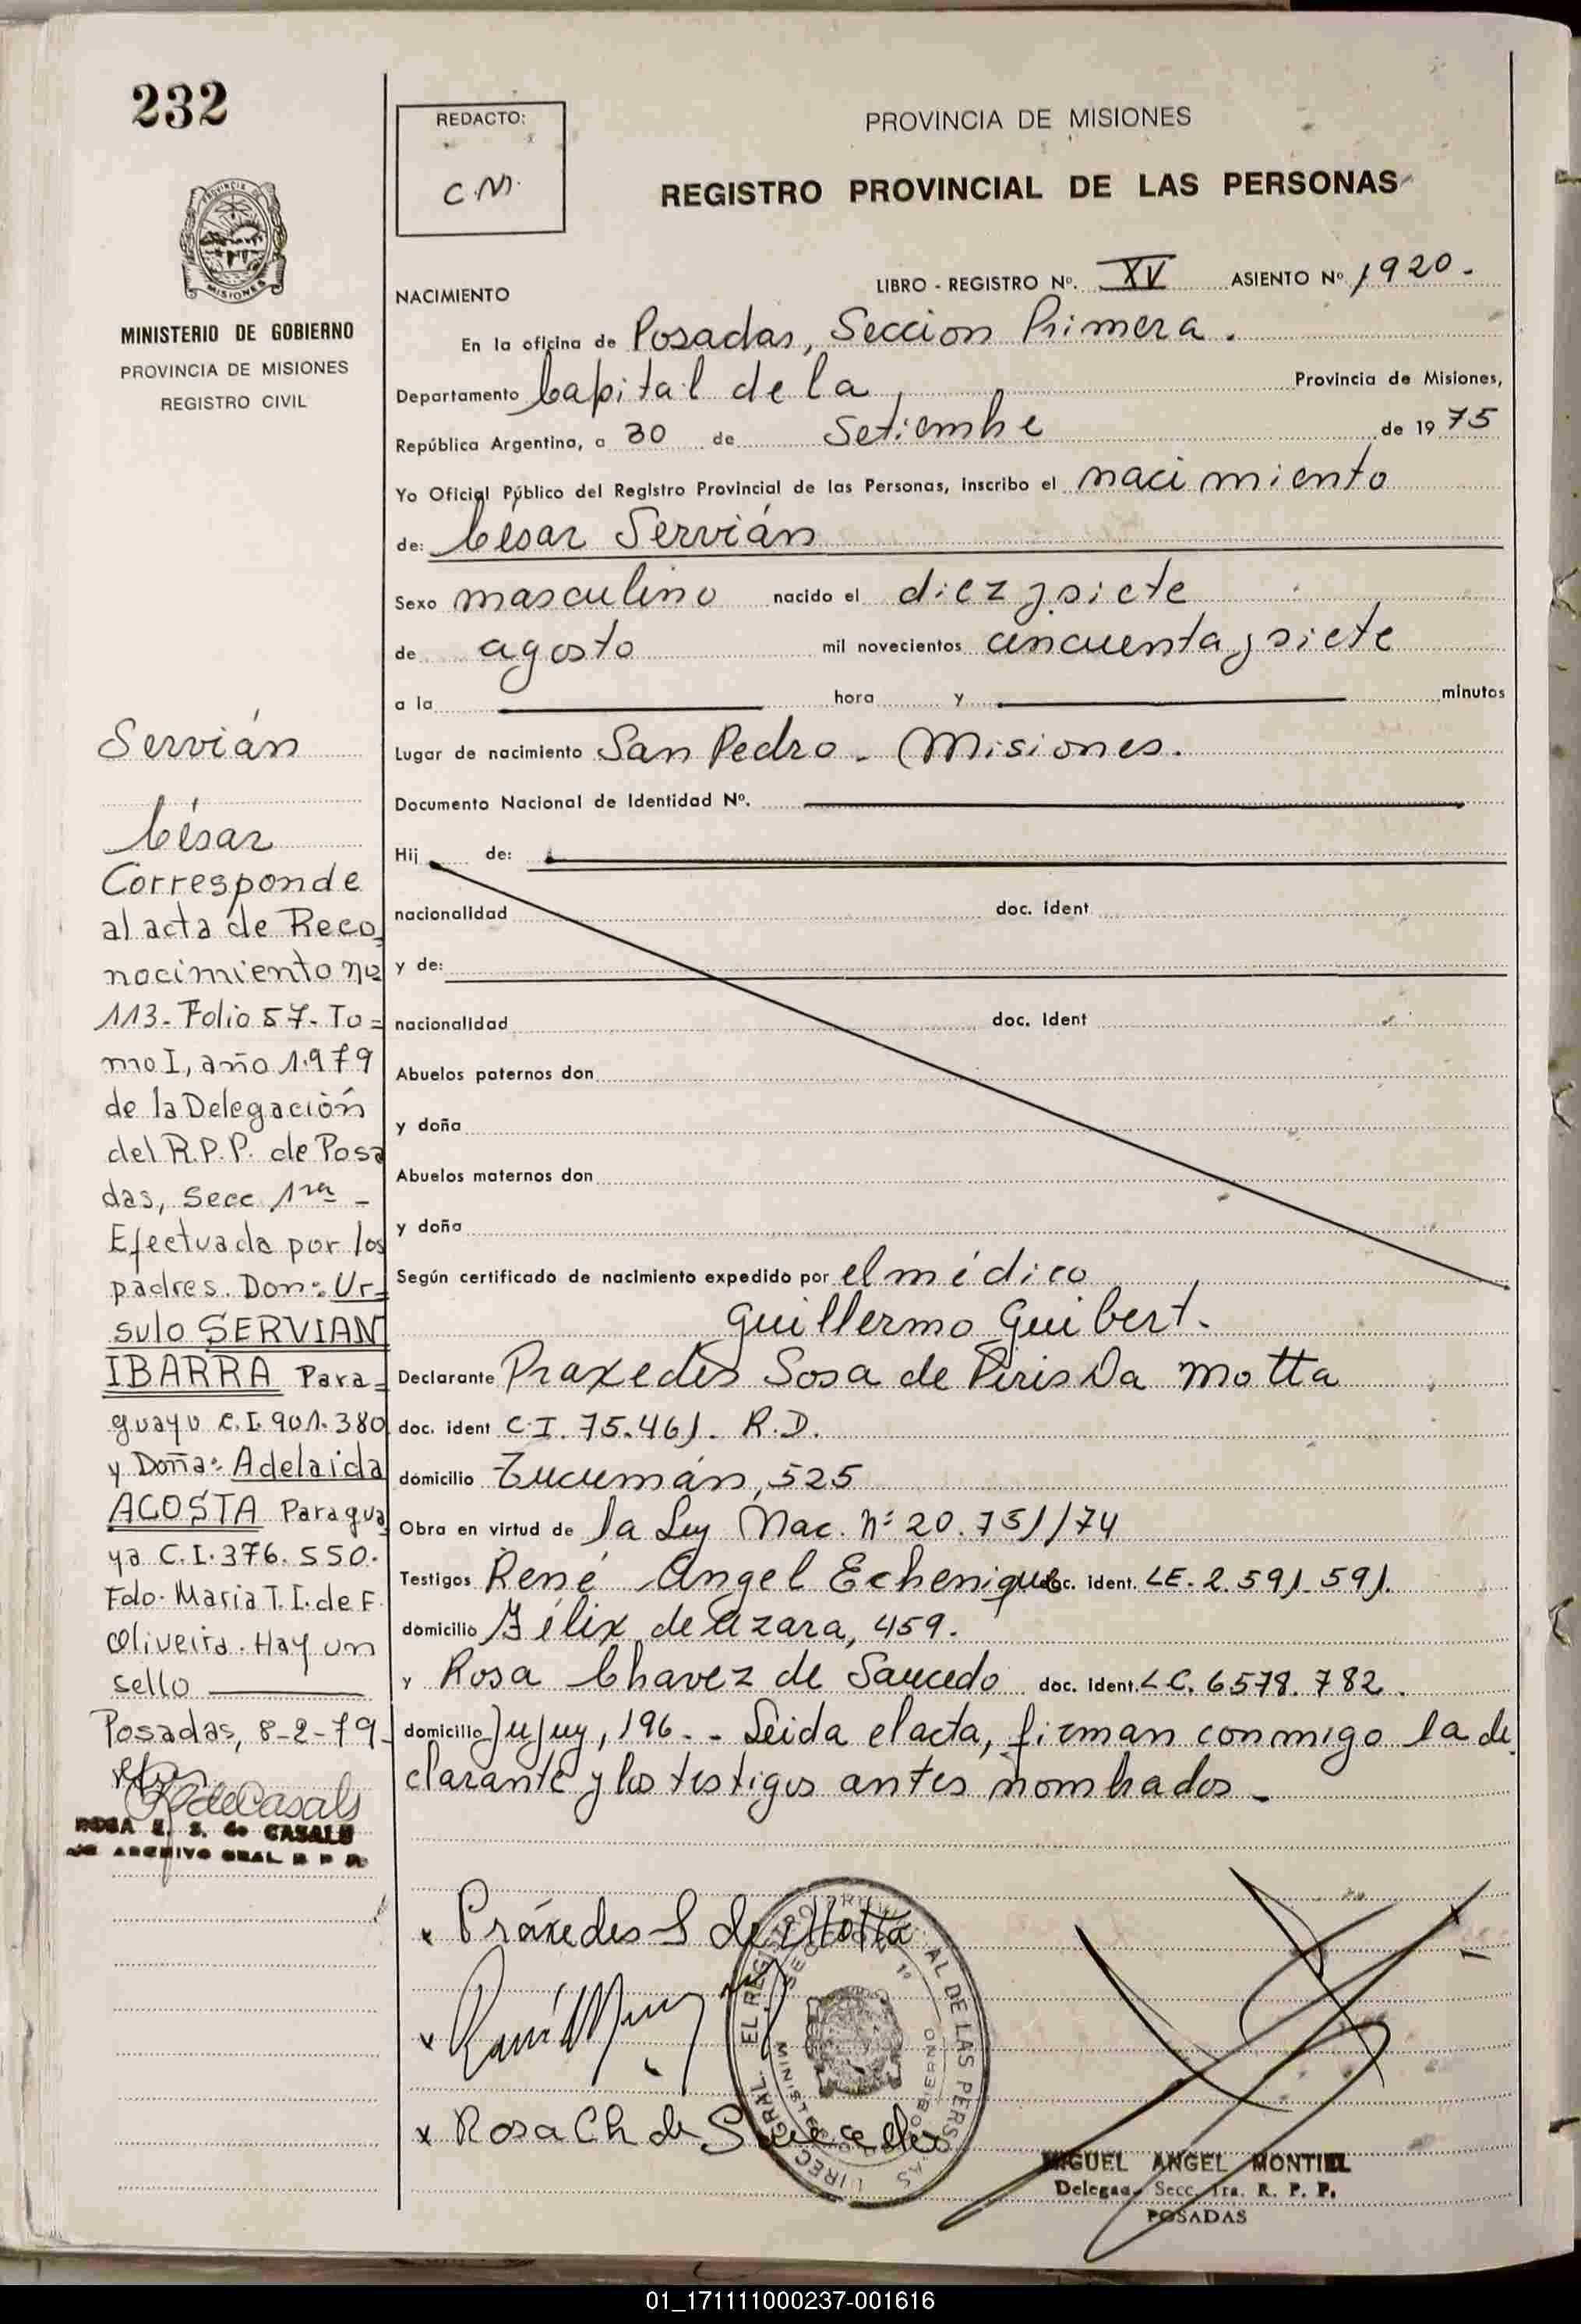 232
REDACTO:
C.M.
PROVINCIA DE MISIONES
REGISTRO PROVINCIAL DE LAS PERSONAS
PROVINCIA DE
MISIONES
MINISTERIO DE GOBIERNO
PROVINCIA DE MISIONES
REGISTRO CIVIL
LIBRO - REGISTRO Nº. XV ASIENTO Nº 1920.
NACIMIENTO
En la oficina de Posadas, Seccion Primera.
Departamento Capital de la Provincia de Misiones,
República Argentina, a 30 de Setiembre de 1975
Yo Oficial Público del Registro Provincial de las Personas, inscribo el nacimiento
de: César Servián
Sexo masculino nacido el diez y siete
de agosto mil novecientos cincuenta y siete
a la hora y minutos
Lugar de nacimiento San Pedro - Misiones.
Documento Nacional de Identidad Nº.
Hij de:
nacionalidad doc. ident
y de:
nacionalidad doc. ident
Abuelos paternos don
y doña
Abuelos maternos don
y doña
Según certificado de nacimiento expedido por el médico
Guillermo Guibert.
Declarante Praxedes Sosa de Piris Da Motta
doc. ident C.I. 75.461. R.D.
domicilio Tucumán, 525
Obra en virtud de la Ley Nac. nº 20.751/74
Testigos René Angel Echenique doc. ident. LE. 2.591.591.
domicilio Félix de Azara, 459.
y Rosa Chavez de Saucedo doc. ident. LC. 6578.782.
domicilio Jujuy, 196. - Leida el acta, firman conmigo la de
clarante y los testigos antes nombrados.-
Servián
César
Corresponde
al acta de Reco
nocimiento nº
113- Folio 57- To=
mo I, año 1.979
de la Delegación
del R.P.P. de Posa
das, Secc 1ra -
Efectuada por los
padres. Don: Ur=
sulo SERVIAN
IBARRA Para=
guayo C.I. 901.380
y Doña: Adelaida
ACOSTA Paragua
ya C.I. 376.550.
Fdo. Maria T. I. de F.
Oliveira. Hay un
sello
Posadas, 8-2-79-
R de Casals
ROSA E. S. de CASALS
ARCHIVO GRAL R P P
x Práxedes S de Motta
x
x Rosa Ch de Saucedo
MIGUEL ANGEL MONTIEL
Delegad. Secc. 1ra. R. P. P.
POSADAS
01_171111000237-001616